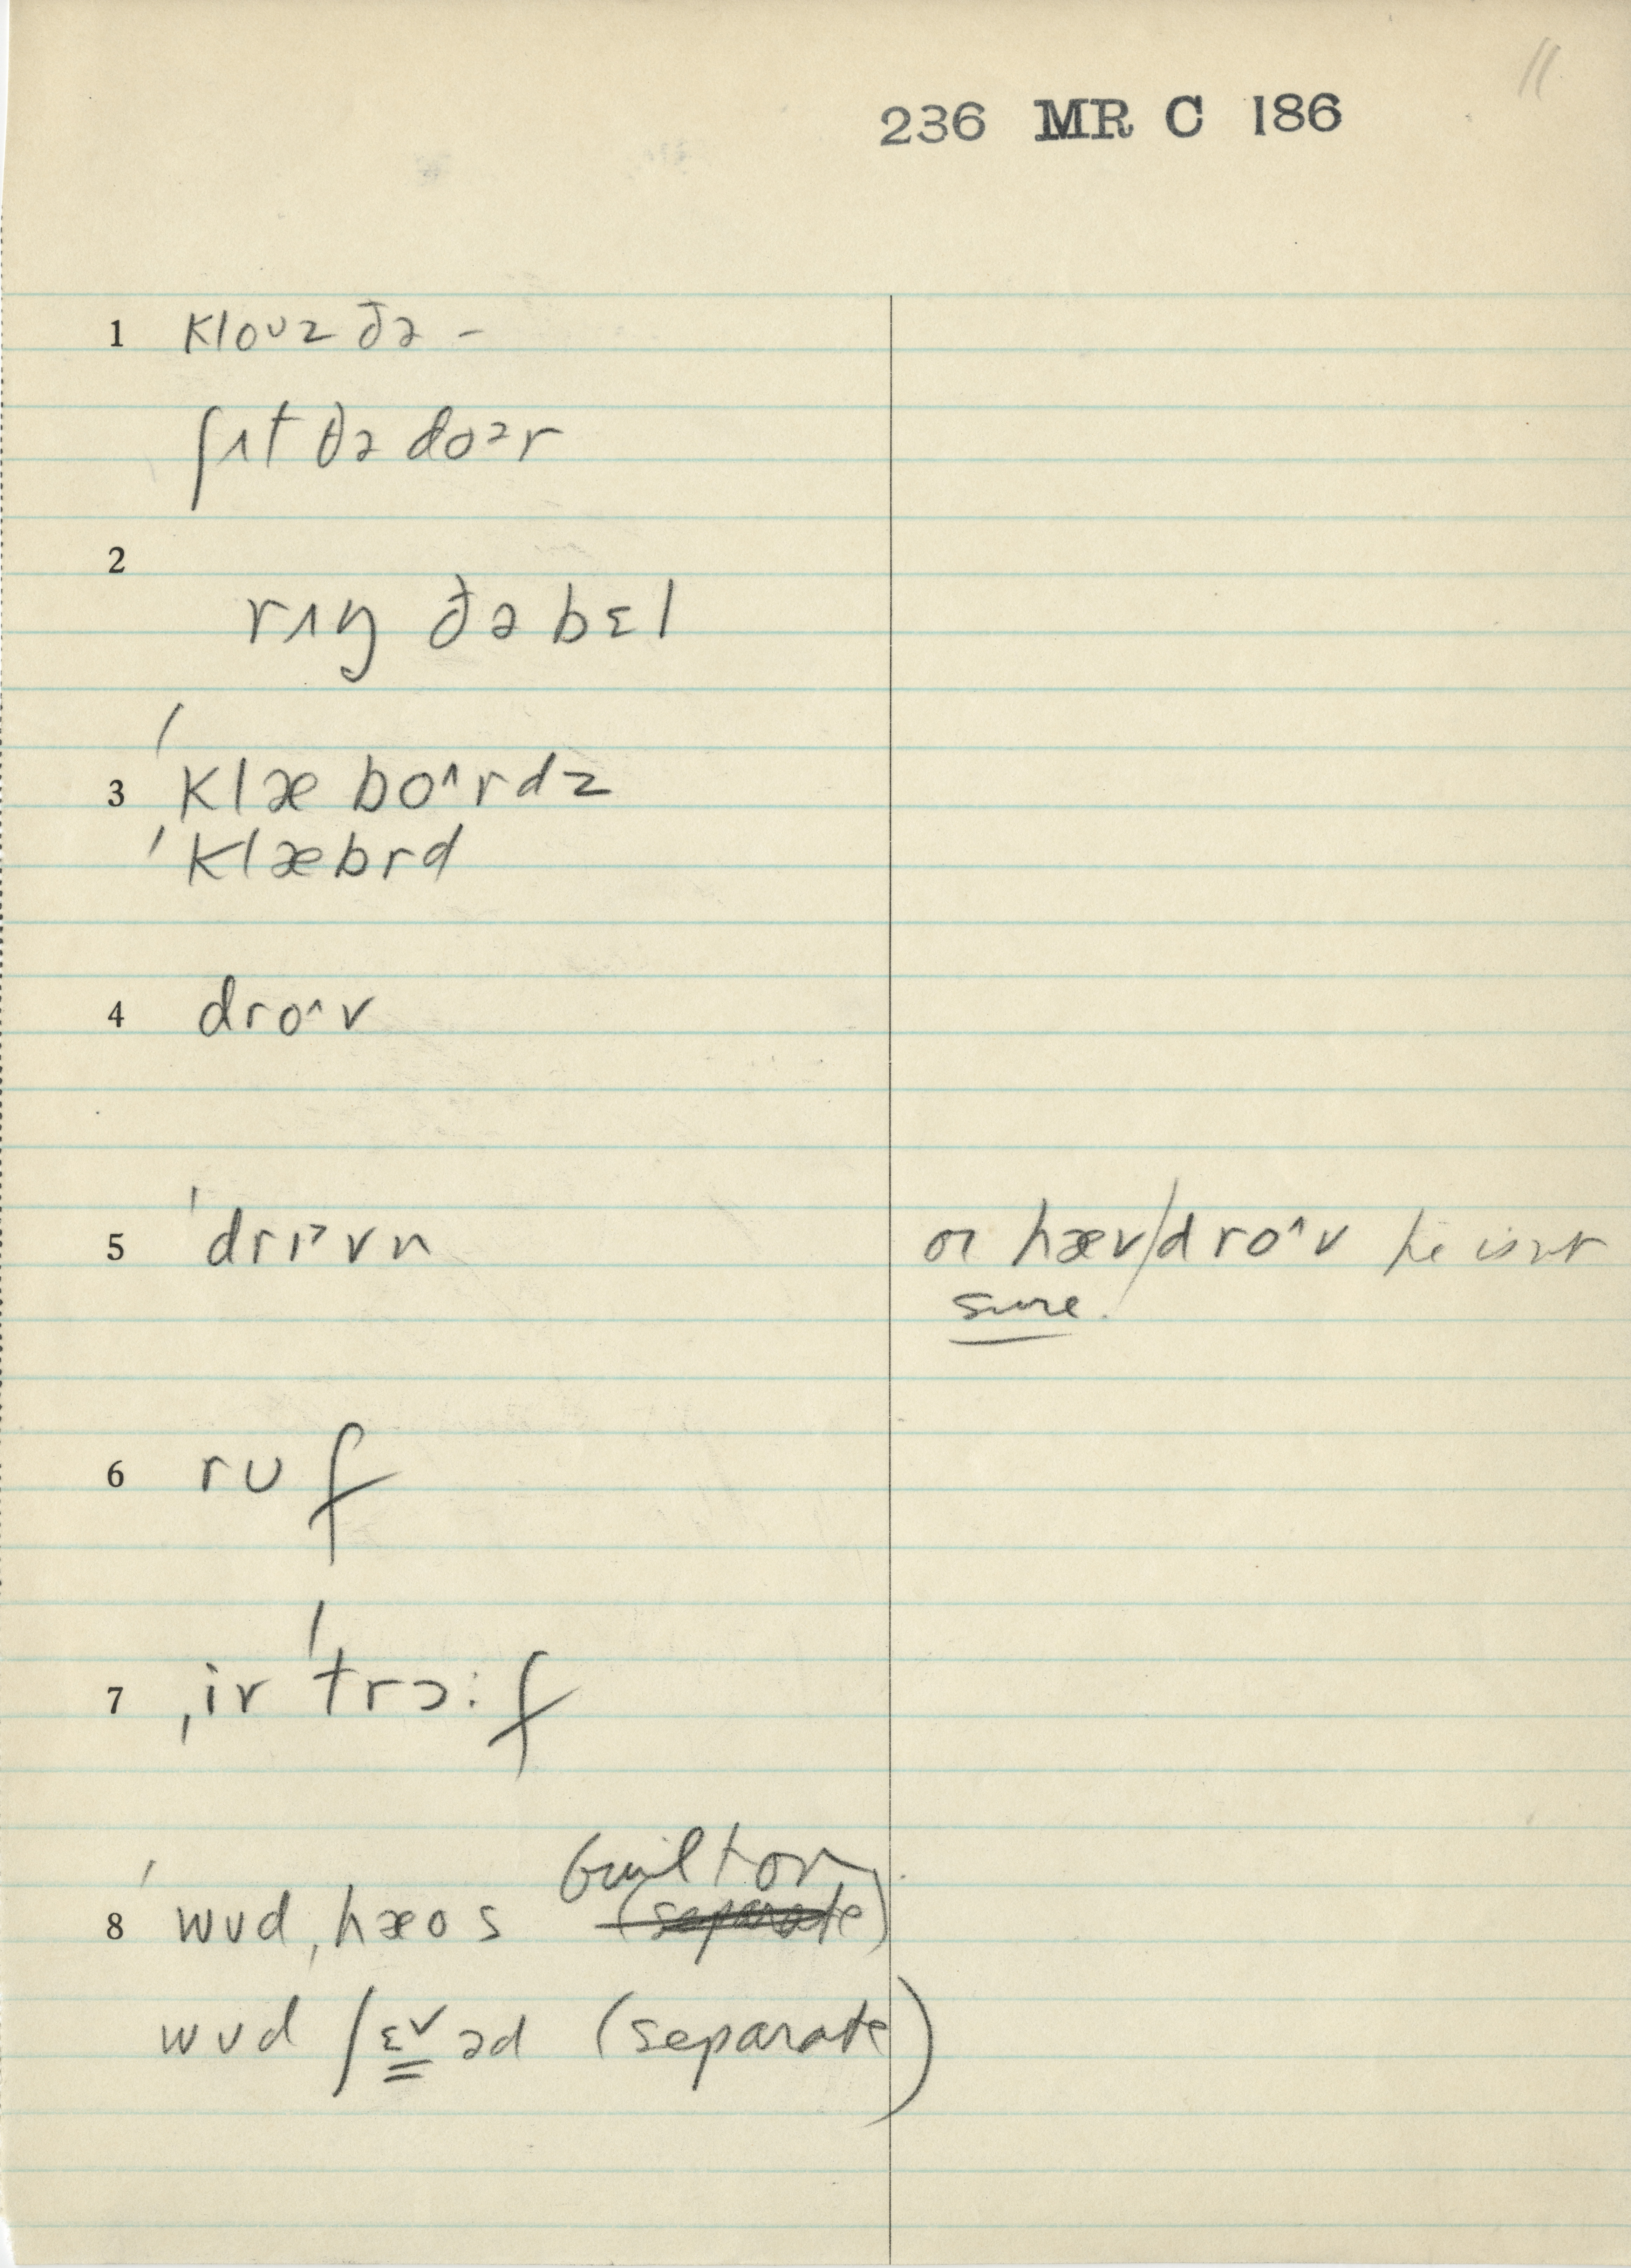 11
236 MR C 186
1 kloʊz ðə –
ʃʌt ðə doər
2
rɪŋ ðə bɛl
3 ˈklæ bo^rdz
ˈklæbrd
4 dro^v
5 ˈdrɪ>vn or hæv/dro^v he isn't
sure.
6 rʊf
7 ˌiv ˈtrɔ:f
built on
8 ˈwʊdˌhæos (separate)
wʊd ʃɛ˅əd (separate)